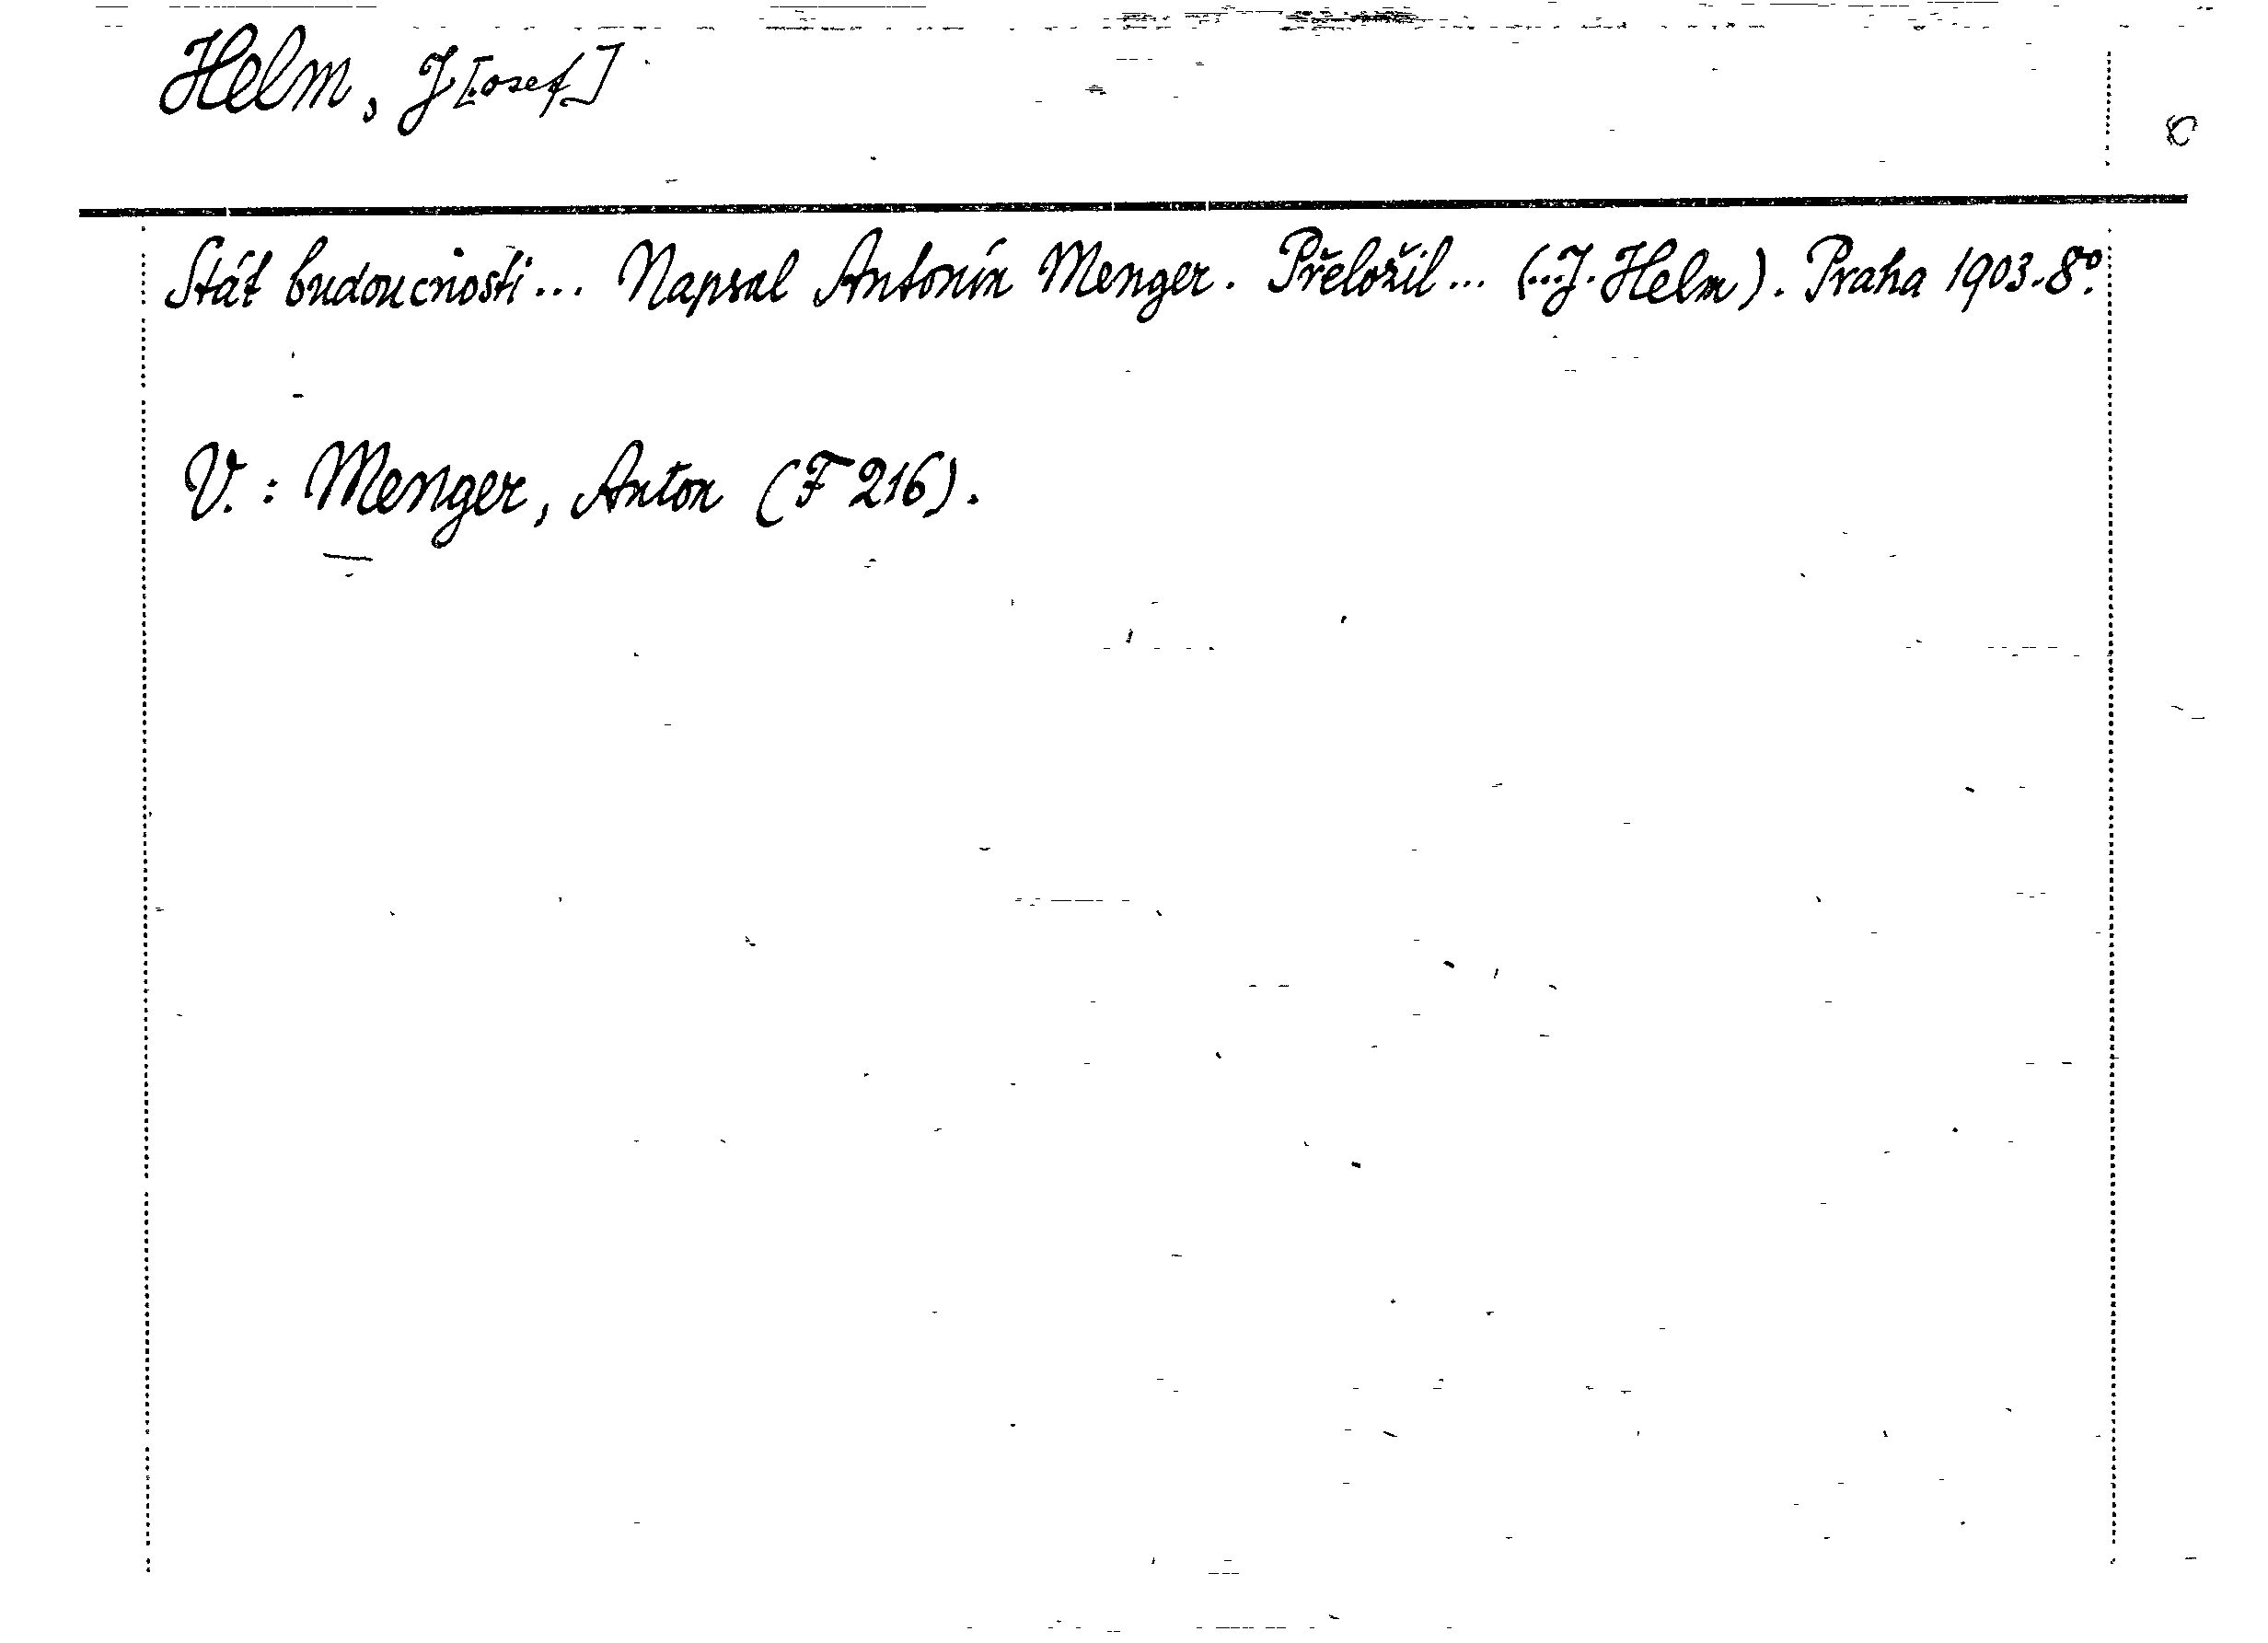 Helm, J[osef]
Stát budoucnosti... Napsal Antonín Menger. Přeložil... (...J. Helm). Praha 1903. 8°.
V.: Menger, Anton (F 216).